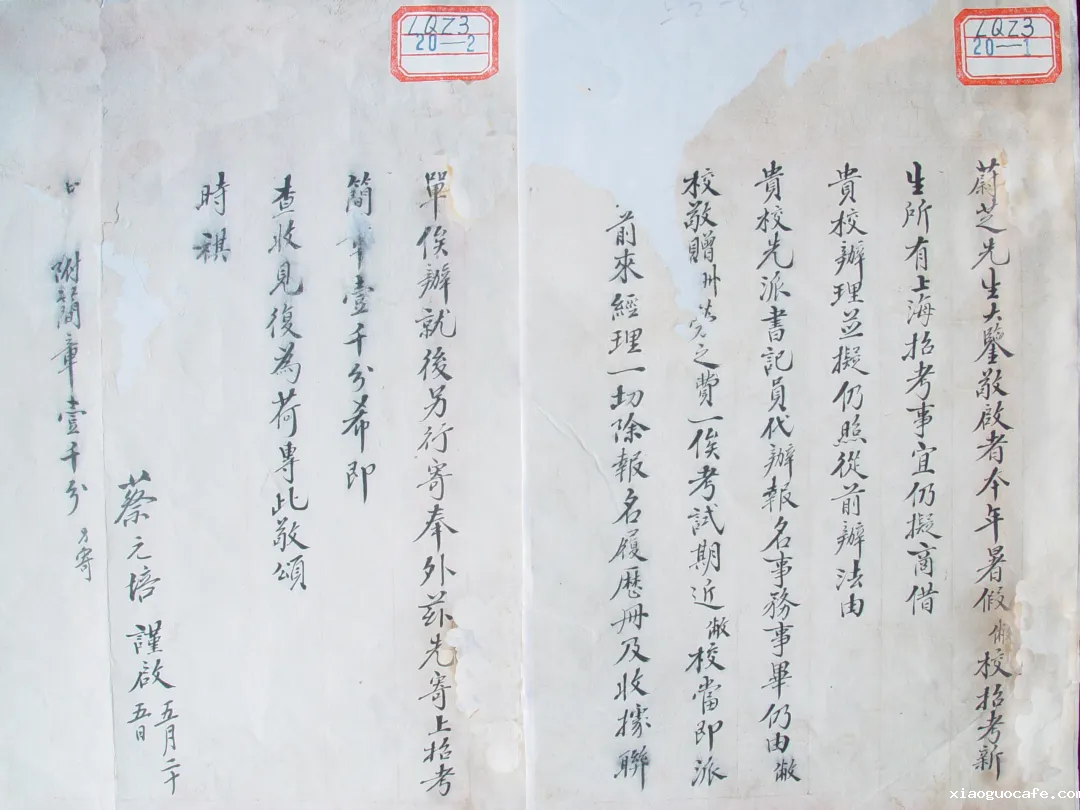 LQZ3
20—1
蔚芝先生大鑒敬啟者今年暑假敝校招考新
生所有上海招考事宜仍擬商借
貴校辦理並擬仍照從前辦法由
貴校先派書記員代辦報名事務事畢仍由敝
校敬贈之費一俟考試期近敝校當即派
前來經理一切除報名履歷冊及收據聯
LQZ3
20—2
單俟辦就後另行寄奉外茲先寄上招考
簡章壹千分希即
查收見復為荷專此敬頌
時祺
蔡元培 謹啟 五月二十五日
附簡章壹千分 另寄
xiaoguocafe.com